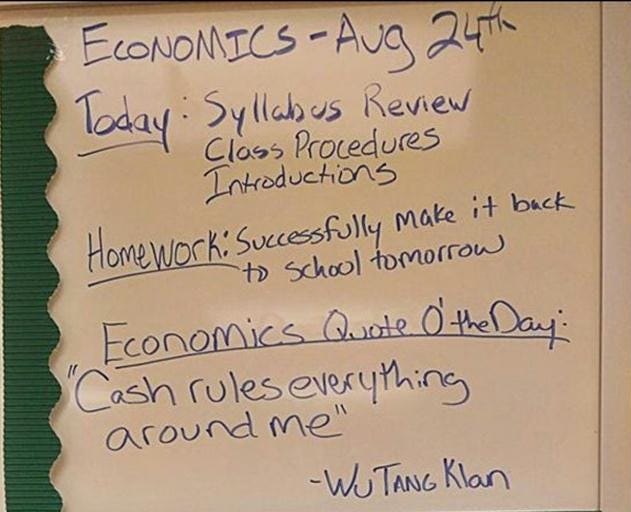 ECONOMICS - Aug 24th
Today: Syllabus Review
Class Procedures
Introductions
Homework: Successfully make it back
to school tomorrow
Economics Quote O'the Day:
"Cash rules everything
around me"
-Wu TANG Klan